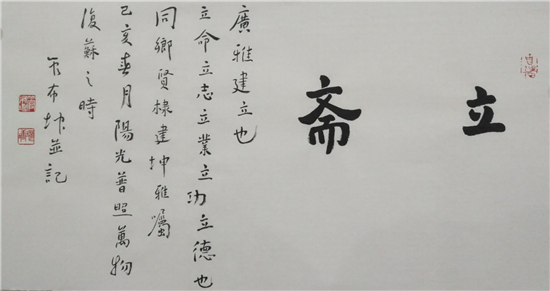 立斋
廣雅建立也
立命立志立業立功立德也
同鄉賢棣建坤雅囑
己亥春月陽光普照萬物
復蘇之時
布坤並記